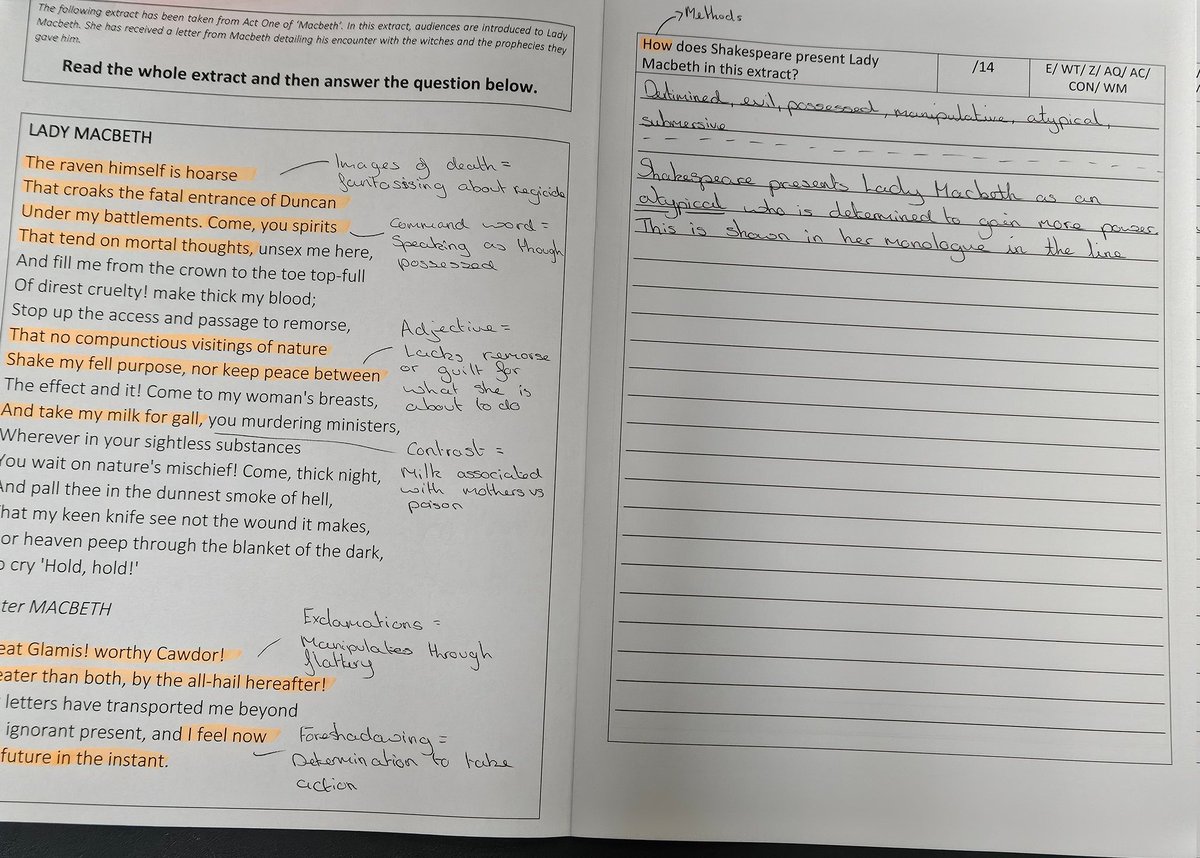 The following extract has been taken from Act One of 'Macbeth'. In this extract, audiences are introduced to Lady
Macbeth. She has received a letter from Macbeth detailing his encounter with the witches and the prophecies they
gave him.
Read the whole extract and then answer the question below.
LADY MACBETH
The raven himself is hoarse
That croaks the fatal entrance of Duncan
Under my battlements. Come, you spirits
That tend on mortal thoughts, unsex me here,
And fill me from the crown to the toe top-full
Of direst cruelty! make thick my blood;
Stop up the access and passage to remorse,
That no compunctious visitings of nature
Shake my fell purpose, nor keep peace between
The effect and it! Come to my woman's breasts,
And take my milk for gall, you murdering ministers,
Wherever in your sightless substances
You wait on nature's mischief! Come, thick night,
And pall thee in the dunnest smoke of hell,
That my keen knife see not the wound it makes,
or heaven peep through the blanket of the dark,
o cry 'Hold, hold!'
ter MACBETH
eat Glamis! worthy Cawdor!
eater than both, by the all-hail hereafter!
letters have transported me beyond
ignorant present, and I feel now
future in the instant.
Images of death =
fantasising about regicide
Command word =
Speaking as though
possessed
Adjective =
Lacks remorse
or guilt for
what she is
about to do
Contrast =
Milk associated
with mothers vs
poison
Exclamations =
Manipulates through
flattery
Foreshadowing =
Determination to take
action
Methods
How does Shakespeare present Lady
Macbeth in this extract?
/14
E/ WT/ Z/ AQ/ AC/
CON/ WM
Detimined, evil, possessed, manipulative, atypical,
submersive
Shakespeare presents Lady Macbeth as an
atypical who is determined to gain more power.
This is shown in her monologue in the line